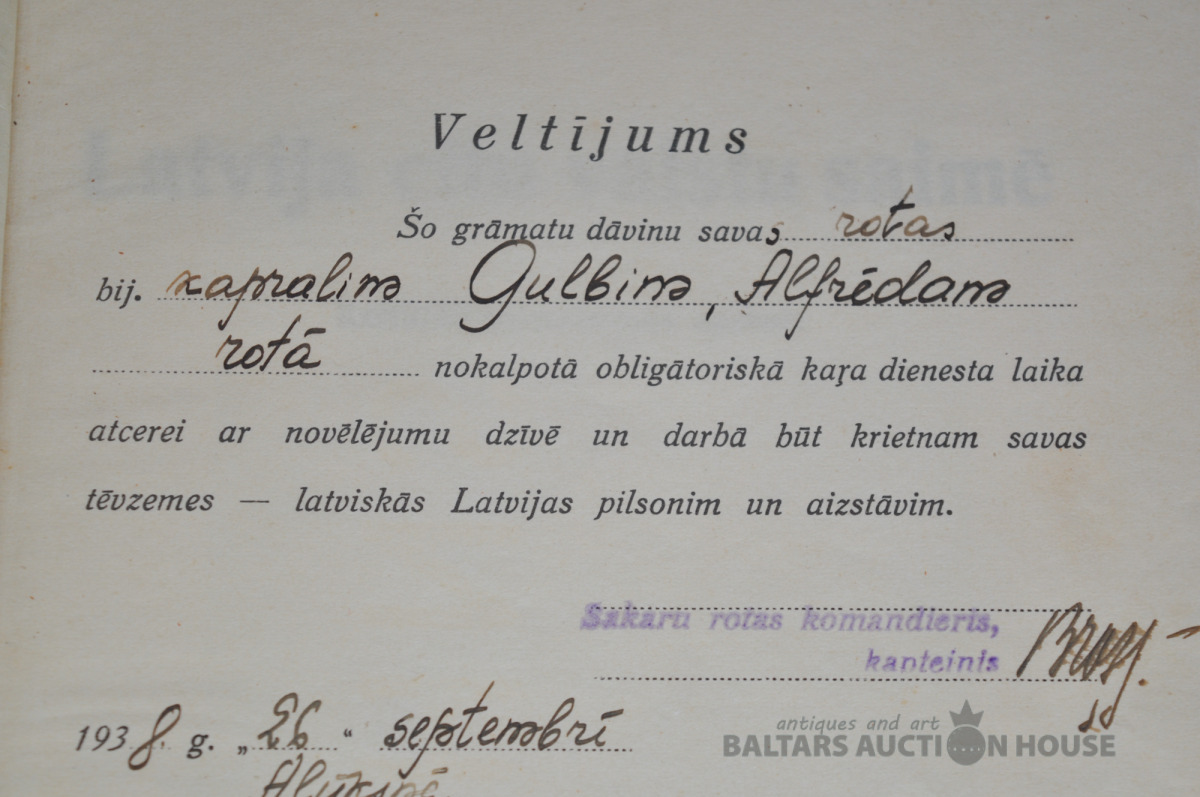 Veltījums
Šo grāmatu dāvinu savas rotas
bij. kapralim Gulbim, Alfrēdam
rotā nokalpotā obligātoriskā kaŗa dienesta laika
atcerei ar novēlējumu dzīvē un darbā būt krietnam savas
tēvzemes — latviskās Latvijas pilsonim un aizstāvim.
Sakaru rotas komandieris,
kapteinis
1938. g. „26“ septembrī
Alūksnē
antiques and art
BALTARS AUCTION HOUSE